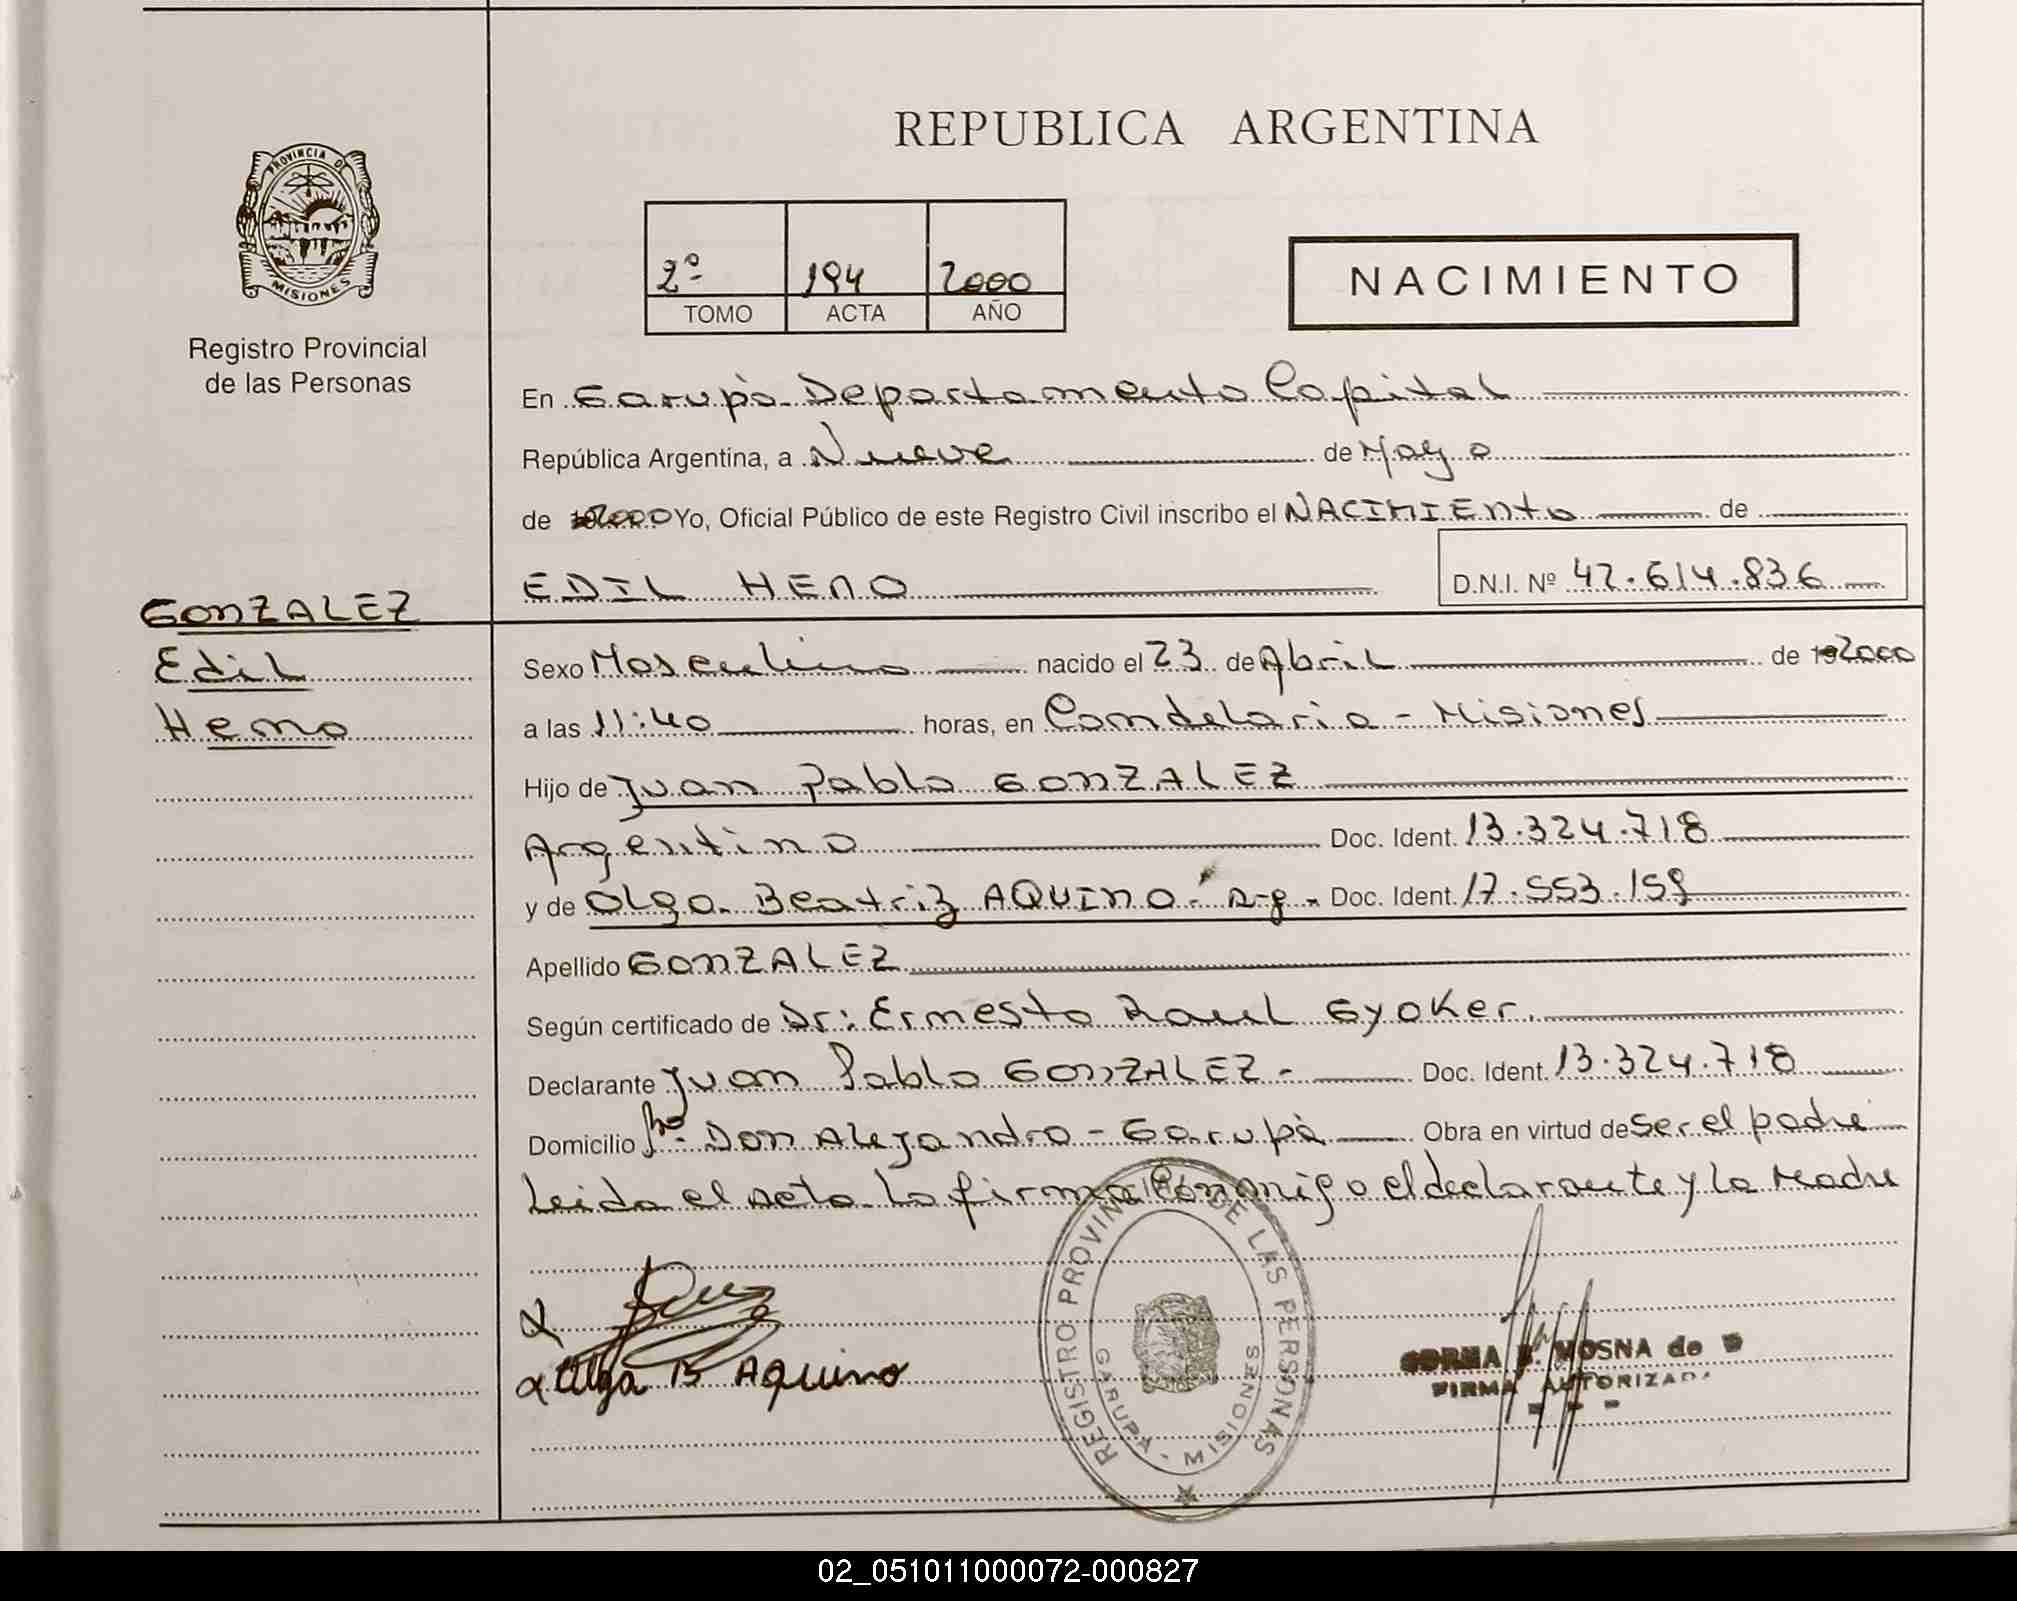 REPUBLICA ARGENTINA
PROVINCIA DE
MISIONES
Registro Provincial
de las Personas
2º 194 2000
TOMO ACTA AÑO
NACIMIENTO
En Garupá Departamento Capital
República Argentina, a Nueve de Mayo
de 2000 Yo, Oficial Público de este Registro Civil inscribo el NACIMIENTO de
EDIL HENO D.N.I. Nº 42.614.836
GONZALEZ
Edil
Heno
Sexo Masculino nacido el 23 de Abril de 192000
a las 11:40 horas, en Candelaria - Misiones
Hijo de Juan Pablo GONZALEZ
Argentino Doc. Ident. 13.324.718
y de Olga Beatriz AQUINO - Doc. Ident. 17.553.159
Apellido GONZALEZ
Según certificado de Dr: Ernesto Raul Gyoker.
Declarante Juan Pablo GONZALEZ - Doc. Ident. 13.324.718
Domicilio Bº Don Alejandro - Garupá Obra en virtud de Ser el padre
Leida el Acta La firma Conmigo el declarante y la Madre
REGISTRO PROVINCIAL DE LAS PERSONAS
GARUPA - MISIONES
Olga B Aquino
MOSNA de
FIRMA AUTORIZADA
02_051011000072-000827